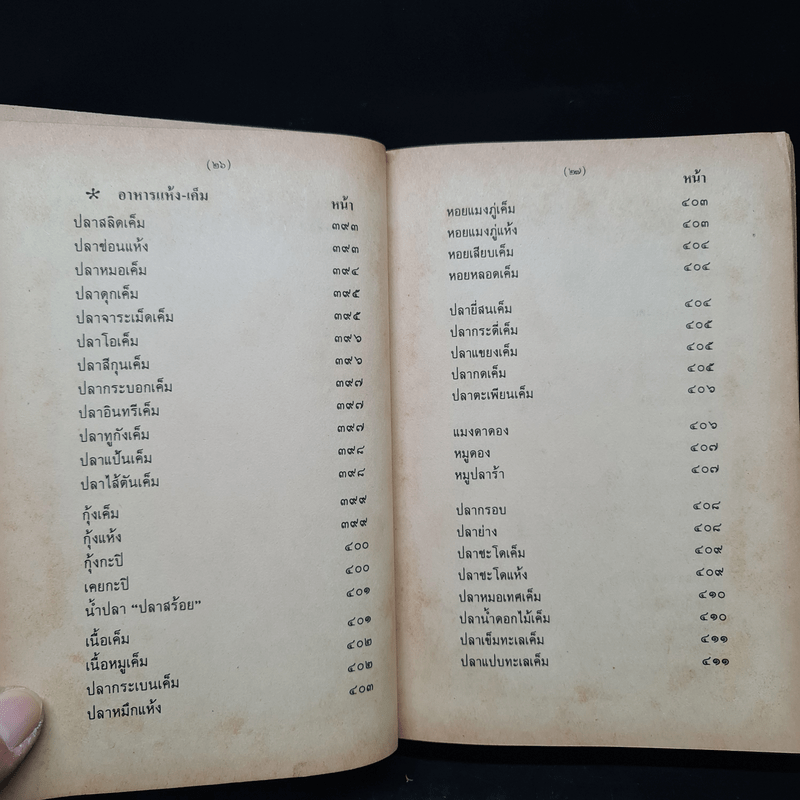 (๒๖)
* อาหารแห้ง-เค็ม หน้า
ปลาสลิดเค็ม ๓๙๓
ปลาช่อนแห้ง ๓๙๓
ปลาหมอเค็ม ๓๙๔
ปลาดุกเค็ม ๓๙๕
ปลาจาระเม็ดเค็ม ๓๙๕
ปลาโอเค็ม ๓๙๖
ปลาสีกุนเค็ม ๓๙๖
ปลากระบอกเค็ม ๓๙๗
ปลาอินทรีเค็ม ๓๙๗
ปลาทูกังเค็ม ๓๙๗
ปลาแป้นเค็ม ๓๙๘
ปลาไส้ตันเค็ม ๓๙๘
กุ้งเค็ม ๓๙๙
กุ้งแห้ง ๓๙๙
กุ้งกะปิ ๔๐๐
เคยกะปิ ๔๐๐
น้ำปลา “ปลาสร้อย” ๔๐๑
เนื้อเค็ม ๔๐๑
เนื้อหมูเค็ม ๔๐๒
ปลากระเบนเค็ม ๔๐๒
ปลาหมึกแห้ง ๔๐๓
(๒๗)
หน้า
หอยแมงภู่เค็ม ๔๐๓
หอยแมงภู่แห้ง ๔๐๓
หอยเสียบเค็ม ๔๐๔
หอยหลอดเค็ม ๔๐๔
ปลายี่สนเค็ม ๔๐๔
ปลากระดี่เค็ม ๔๐๕
ปลาแขยงเค็ม ๔๐๕
ปลากดเค็ม ๔๐๕
ปลาตะเพียนเค็ม ๔๐๖
แมงดาดอง ๔๐๖
หมูดอง ๔๐๗
หมูปลาร้า ๔๐๗
ปลากรอบ ๔๐๘
ปลาย่าง ๔๐๘
ปลาชะโดเค็ม ๔๐๙
ปลาชะโดแห้ง ๔๐๙
ปลาหมอเทศเค็ม ๔๑๐
ปลาน้ำดอกไม้เค็ม ๔๑๐
ปลาเข็มทะเลเค็ม ๔๑๑
ปลาแปบทะเลเค็ม ๔๑๑